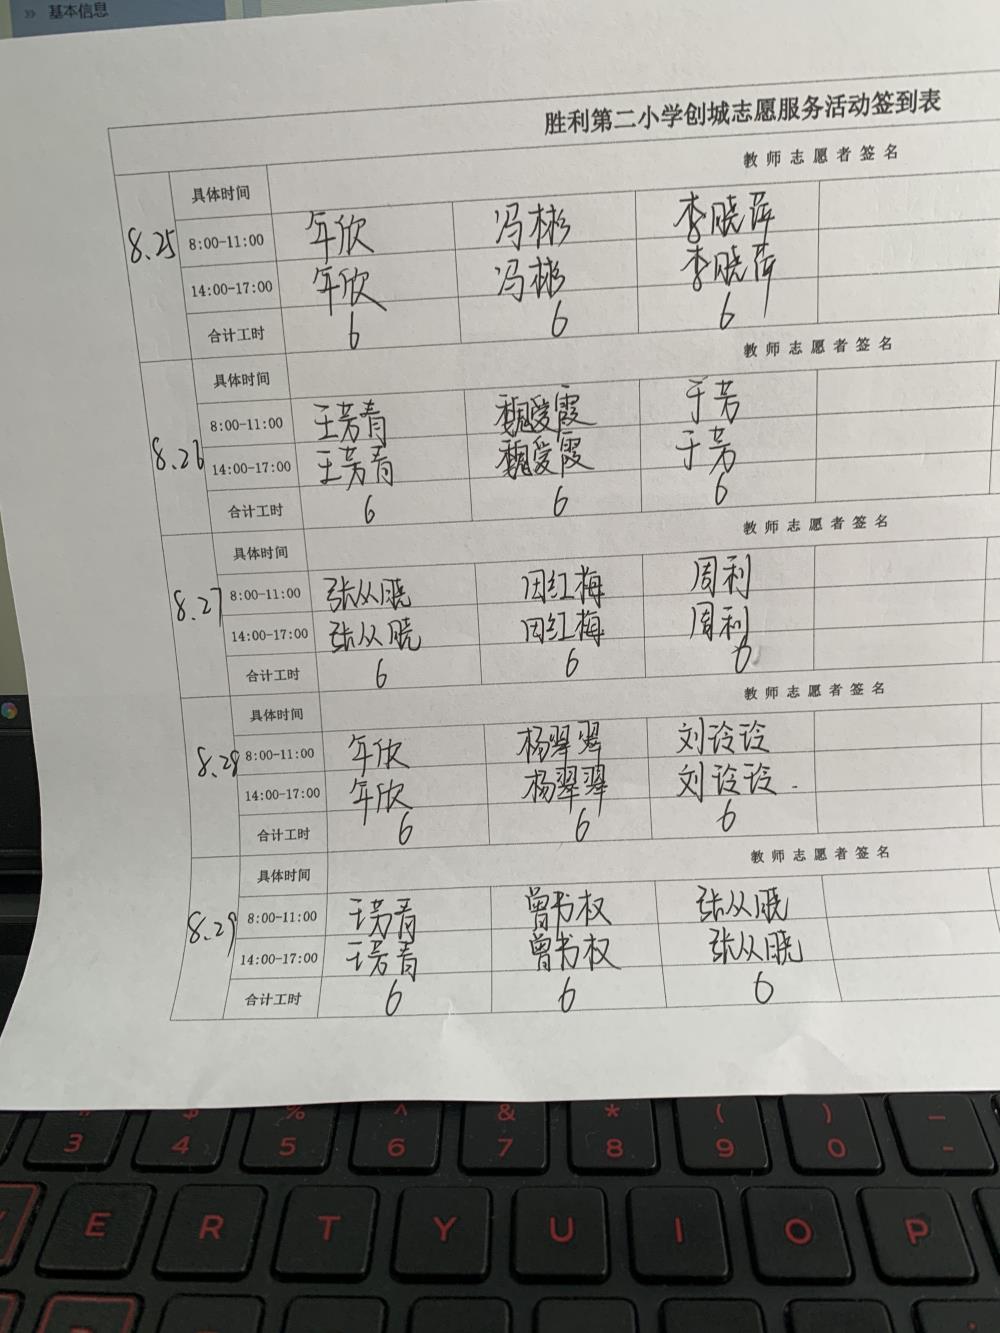 » 基本信息
胜利第二小学创城志愿服务活动签到表
8.25 具体时间 教师志愿者签名
8:00-11:00 年欣 冯彬 李晓萍
14:00-17:00 年欣 冯彬 李晓萍
合计工时 6 6 6
8.26 具体时间 教师志愿者签名
8:00-11:00 王芳青 魏爱霞 于芳
14:00-17:00 王芳青 魏爱霞 于芳
合计工时 6 6 6
8.27 具体时间 教师志愿者签名
8:00-11:00 张从晓 田红梅 周利
14:00-17:00 张从晓 田红梅 周利
合计工时 6 6 6
8.28 具体时间 教师志愿者签名
8:00-11:00 年欣 杨翠翠 刘玲玲
14:00-17:00 年欣 杨翠翠 刘玲玲
合计工时 6 6 6
8.29 具体时间 教师志愿者签名
8:00-11:00 王芳青 曾书权 张从晓
14:00-17:00 王芳青 曾书权 张从晓
合计工时 6 6 6
# $ % ^ & * ( ) —
3 4 5 6 7 8 9 0 -
E R T Y U I O P